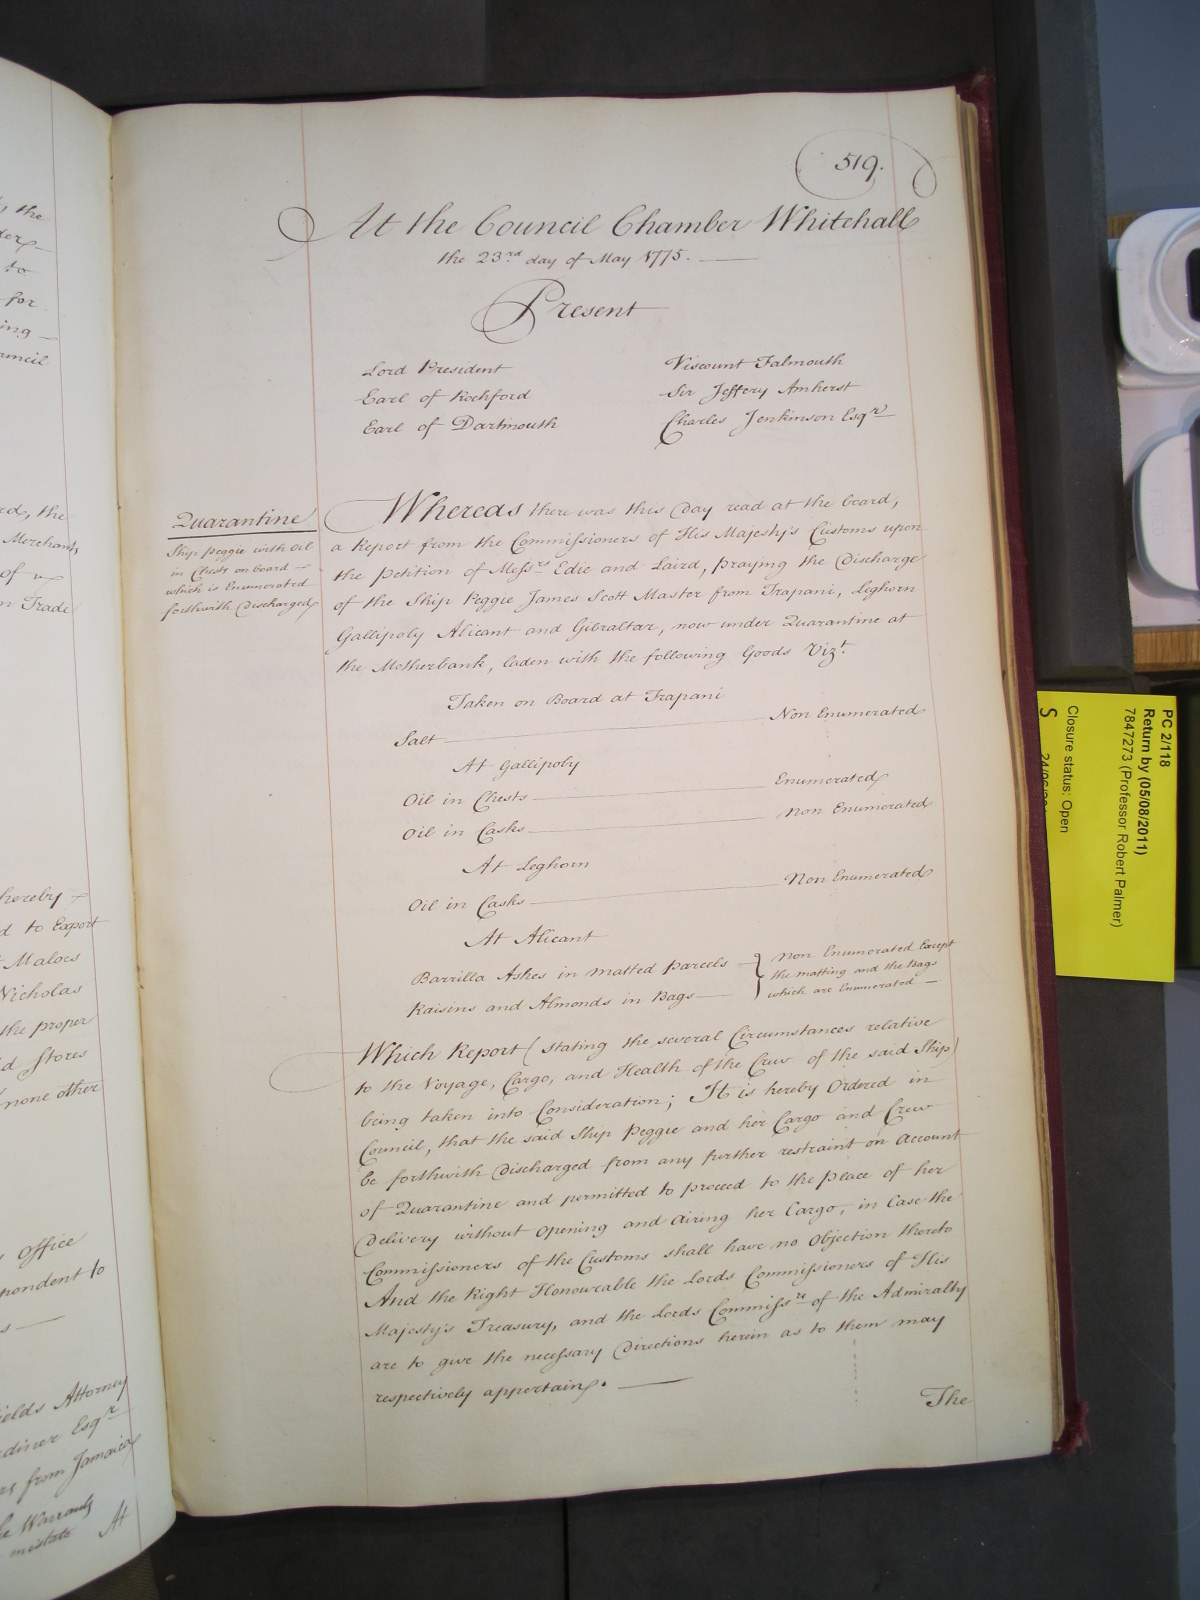 519.
At the Council Chamber Whitehall
the 23rd day of May 1775.
Present
Lord President
Earl of Rochford
Earl of Dartmouth
Viscount Falmouth
Sir Jeffery Amherst
Charles Jenkinson Esqr
Quarantine
Ship Peggie with Oil
in Chests on board
which is Enumerated
forthwith Discharged
Whereas there was this Day read at the board,
a Report from the Commissioners of His Majesty's Customs upon
the Petition of Messrs Edie and Laird, praying the Discharge
of the Ship Peggie James Scott Master from Trapani, Leghorn
Gallipoly Alicant and Gibraltar, now under Quarantine at
the Motherbank, laden with the following Goods Vizt.
Taken on Board at Trapani
Salt Non Enumerated
At Gallipoly
Oil in Chests Enumerated
Oil in Casks Non Enumerated
At Leghorn
Oil in Casks Non Enumerated
At Alicant
Barrilla Ashes in matted Parcels
Raisins and Almonds in Bags
Non Enumerated Except
the matting and the Bags
which are Enumerated
Which Report (stating the several Circumstances relative
to the Voyage, Cargo, and Health of the Crew of the said Ship)
being taken into Consideration; It is hereby Ordered in
Council, that the said Ship Peggie and her Cargo and Crew
be forthwith Discharged from any further restraint on Account
of Quarantine and permitted to proceed to the Place of her
Delivery without Opening and Airing her Cargo, in Case the
Commissioners of the Customs shall have no Objection thereto
And the Right Honourable the Lords Commissioners of His
Majesty's Treasury, and the Lords Commissrs of the Admiralty
are to give the necessary Directions herein as to them may
respectively appertain.
The
the
to
for
ing
uncil
rd, the
Merchants
of
n Trade
hereby
d to Export
Maloes
Nicholas
the proper
d Stores
none other
Office
pondent to
ields Attorney
diner Esqr
rs from Jamaica
Warrants
At
PC 2/118
Return by (05/08/2011)
7847273 (Professor Robert Palmer)
Closure status: Open
S